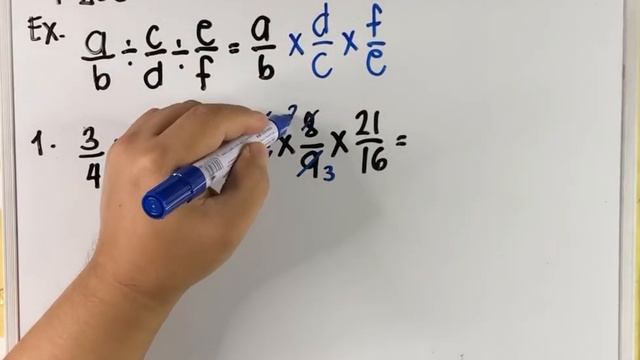 Ex. a/b ÷ c/d ÷ e/f = a/b × d/c × f/e
1. 3/4 × 8/9 3 × 21/16 =